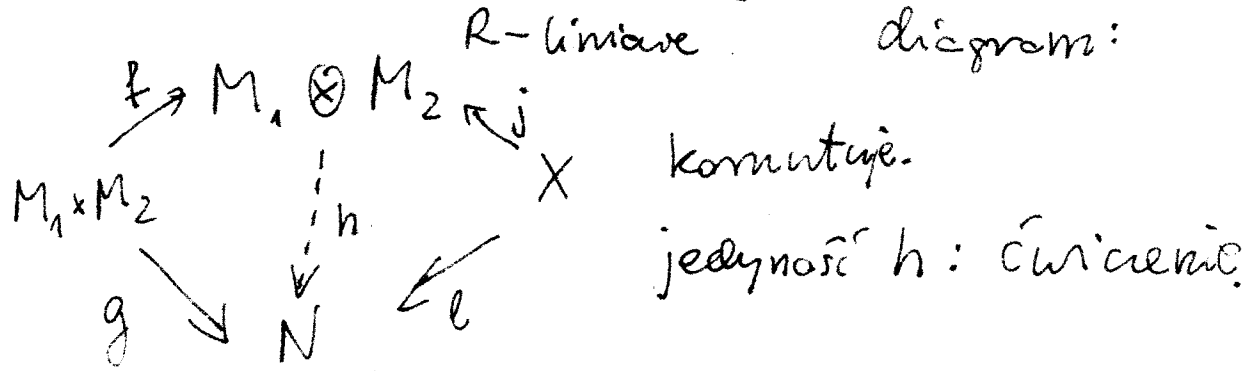 R-liniowe diagram:
f M₁ ⊗ M₂ j
M₁×M₂ h X komutuje.
jedyność h: ćwiczenie.
g N l